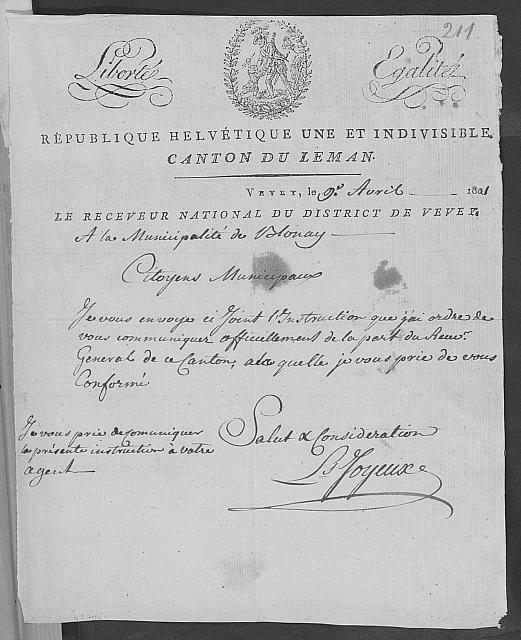 211
Liberté Egalité
RÉPUBLIQUE HELVÉTIQUE UNE ET INDIVISIBLE.
CANTON DU LÉMAN.
VEVEY, le 9.e Avril 1801
LE RECEVEUR NATIONAL DU DISTRICT DE VEVEY.
A la Municipalité de Blonay
Citoyens Municipaux
Je vous envoye ci Joint l'Instruction que j'ai ordre de
vous communiquer officiellement de la part du Recev.r
General de ce Canton, a la quelle je vous prie de vous
Conformé
Je vous prie de comuniquer
la présente instruction à votre
agent
Salut & Consideration
Ls Joyeux